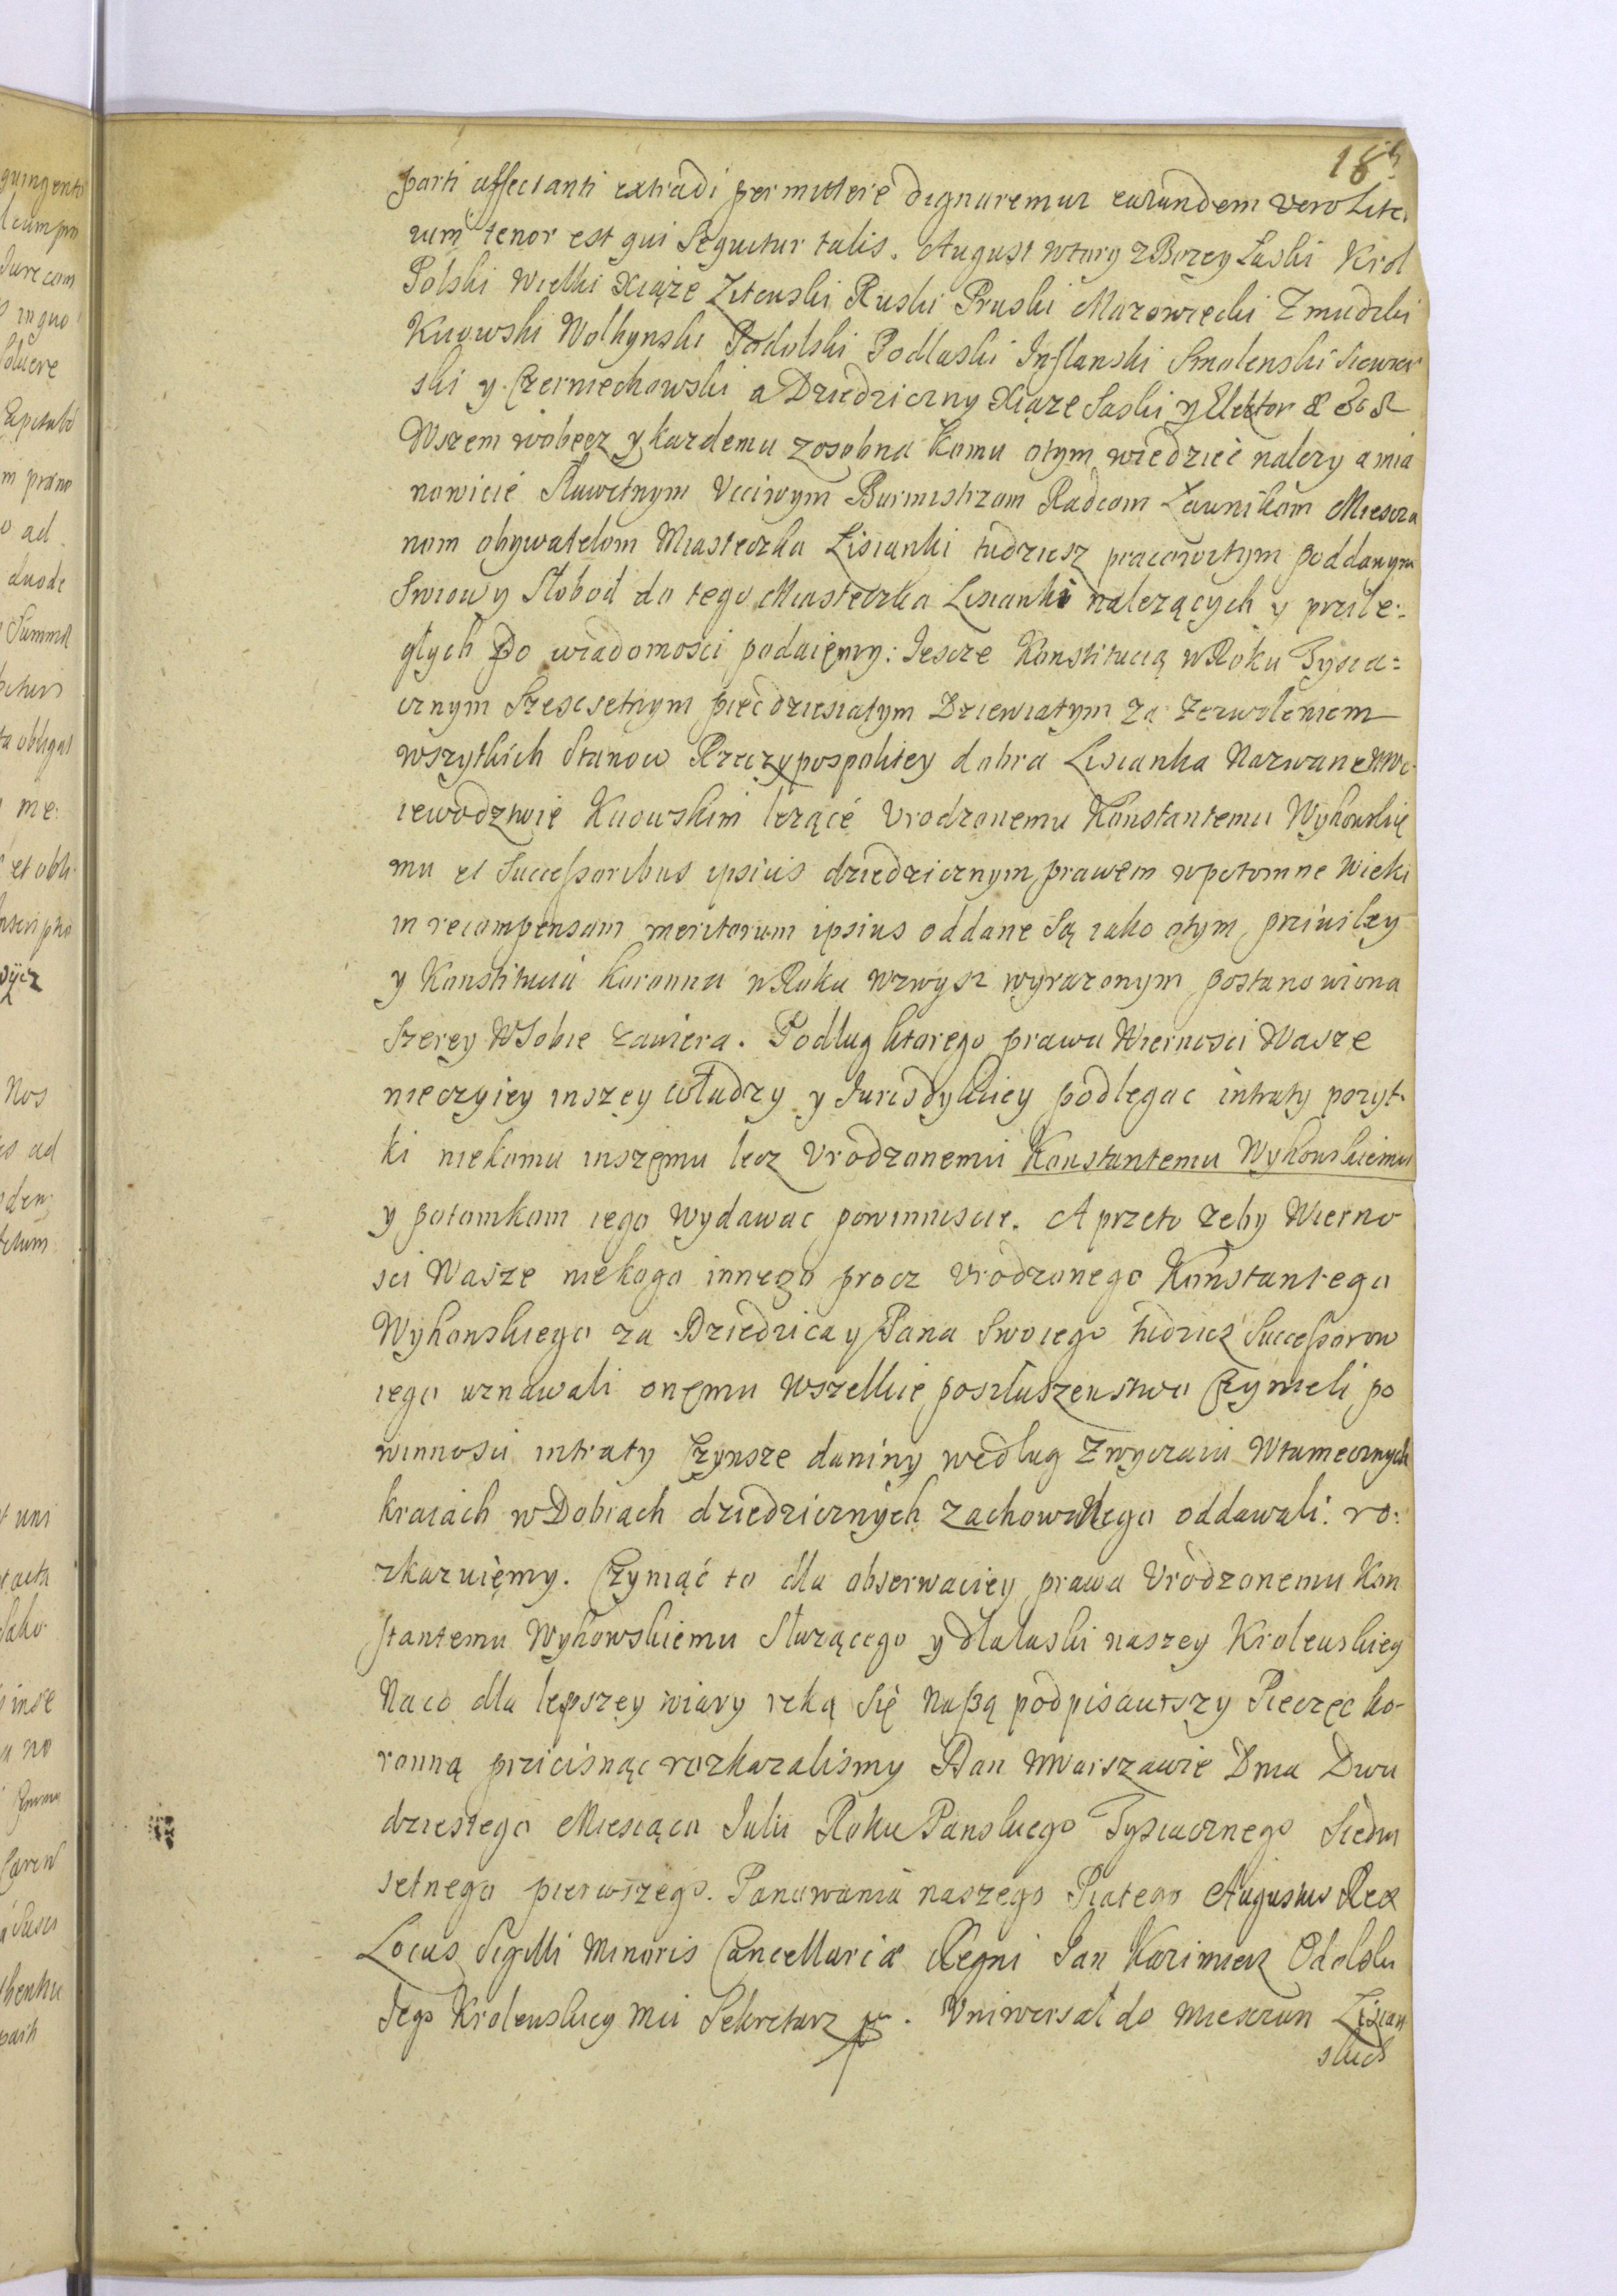 185
parti affectanti extradi permittere dignaremur earundem vero Lite-
rum tenor est qui Sequitur talis. August wtory z Bozey Laski Krol
Polski Wielki Xiąże Litewski Ruski Pruski Mazowiecki Zmudzki
Kiiowski Wolhynski Podolski Podlaski Inflanski Smolenski Siewier
ski y Czerniechowski a Dziedziczny Xiąze Saski y Elektor &
Wszem wobecz y kazdemu zosobna komu otym wiedzieć nalezy a mia
nowicie Sławetnym Vcciwym Burmistrzom Radcom Lawnikom Miescza
nom obywatelom Miasteczka Lisianki tudziesz pracowitym poddanym
Sniow y Słobod do tego Miasteczka Lisianki nalezących y przile-
głych do wiadomosci podaięmy: Iescze Konstitucią w Roku Tysia=
cznym Szescsetnym pięcdziesiatym Dziewiatym za Zezwoleniem
wszytkich Stanow Rzeczypospolitey dobra Lisianka Nazwane wWo-
iewodztwie Kiiowskim lezące Vrodzonemu Konstantemu Wyhowskie
mu et Successoribus ipsius dziedzicznym prawem wpotomne Wieki
in recompensam meritorum ipsius oddane Są iako otym priuiley
y Konstitucia koronna w Roku wzwysz wyrazonym postanowiona
Szerey WSobie zawiera. Podług ktorego prawa Wiernosci Wasze
nieczyiey inszey władzy y Jurisdykciey podlegac intraty pozyt-
ki niekomu inszemu lecz Vrodzonemu Konstantemu Wyhowskiemu
y potomkom iego wydawac powinniscie. A przeto zeby Wierno
sci Wasze niekogo innego procz Vrodzonego Konstantego
Wyhowskiego za Dziedzica y Pana Swoiego tudziez Successorow
iego uznawali onemu wszelkie posłuszenstwo Czynieli po
winnosci intraty Czynsze daniny według Zwyczaiu Wtamecznych
kraiach w Dobrach dziedzicznych zachowalego oddawali ro:
zkazuięmy. Czyniąć to dla obserwaciey prawa Vrodzonemu Kon
stantemu Wyhowskiemu Słuzącego y dla łaski naszey Krolewskiey
Na co dla lepszey wiary ręką Się Naszą podpisawszy Pieczęc ko-
ronną pricisnąc rozkazalismy Dan wWarszawie Dnia Dwu
dziestego Miesiąca Iulii Roku Panskiego Tysiacznego Siedm
setnego pierwszego. Panowania naszego Piatego Augustus Rex
Locus Sigilli Minoris Cancellariæ Regni Jan Kazimierz
Jego Krolewskiey Mci Sekretarz. Vniwersał do Miesczan Lisian
skich